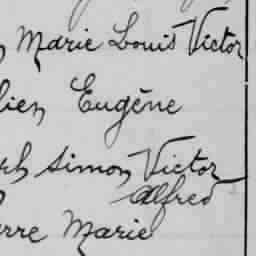 Marie Louis Victor
lien Eugène
Simon Victor
Alfred
rre Marie